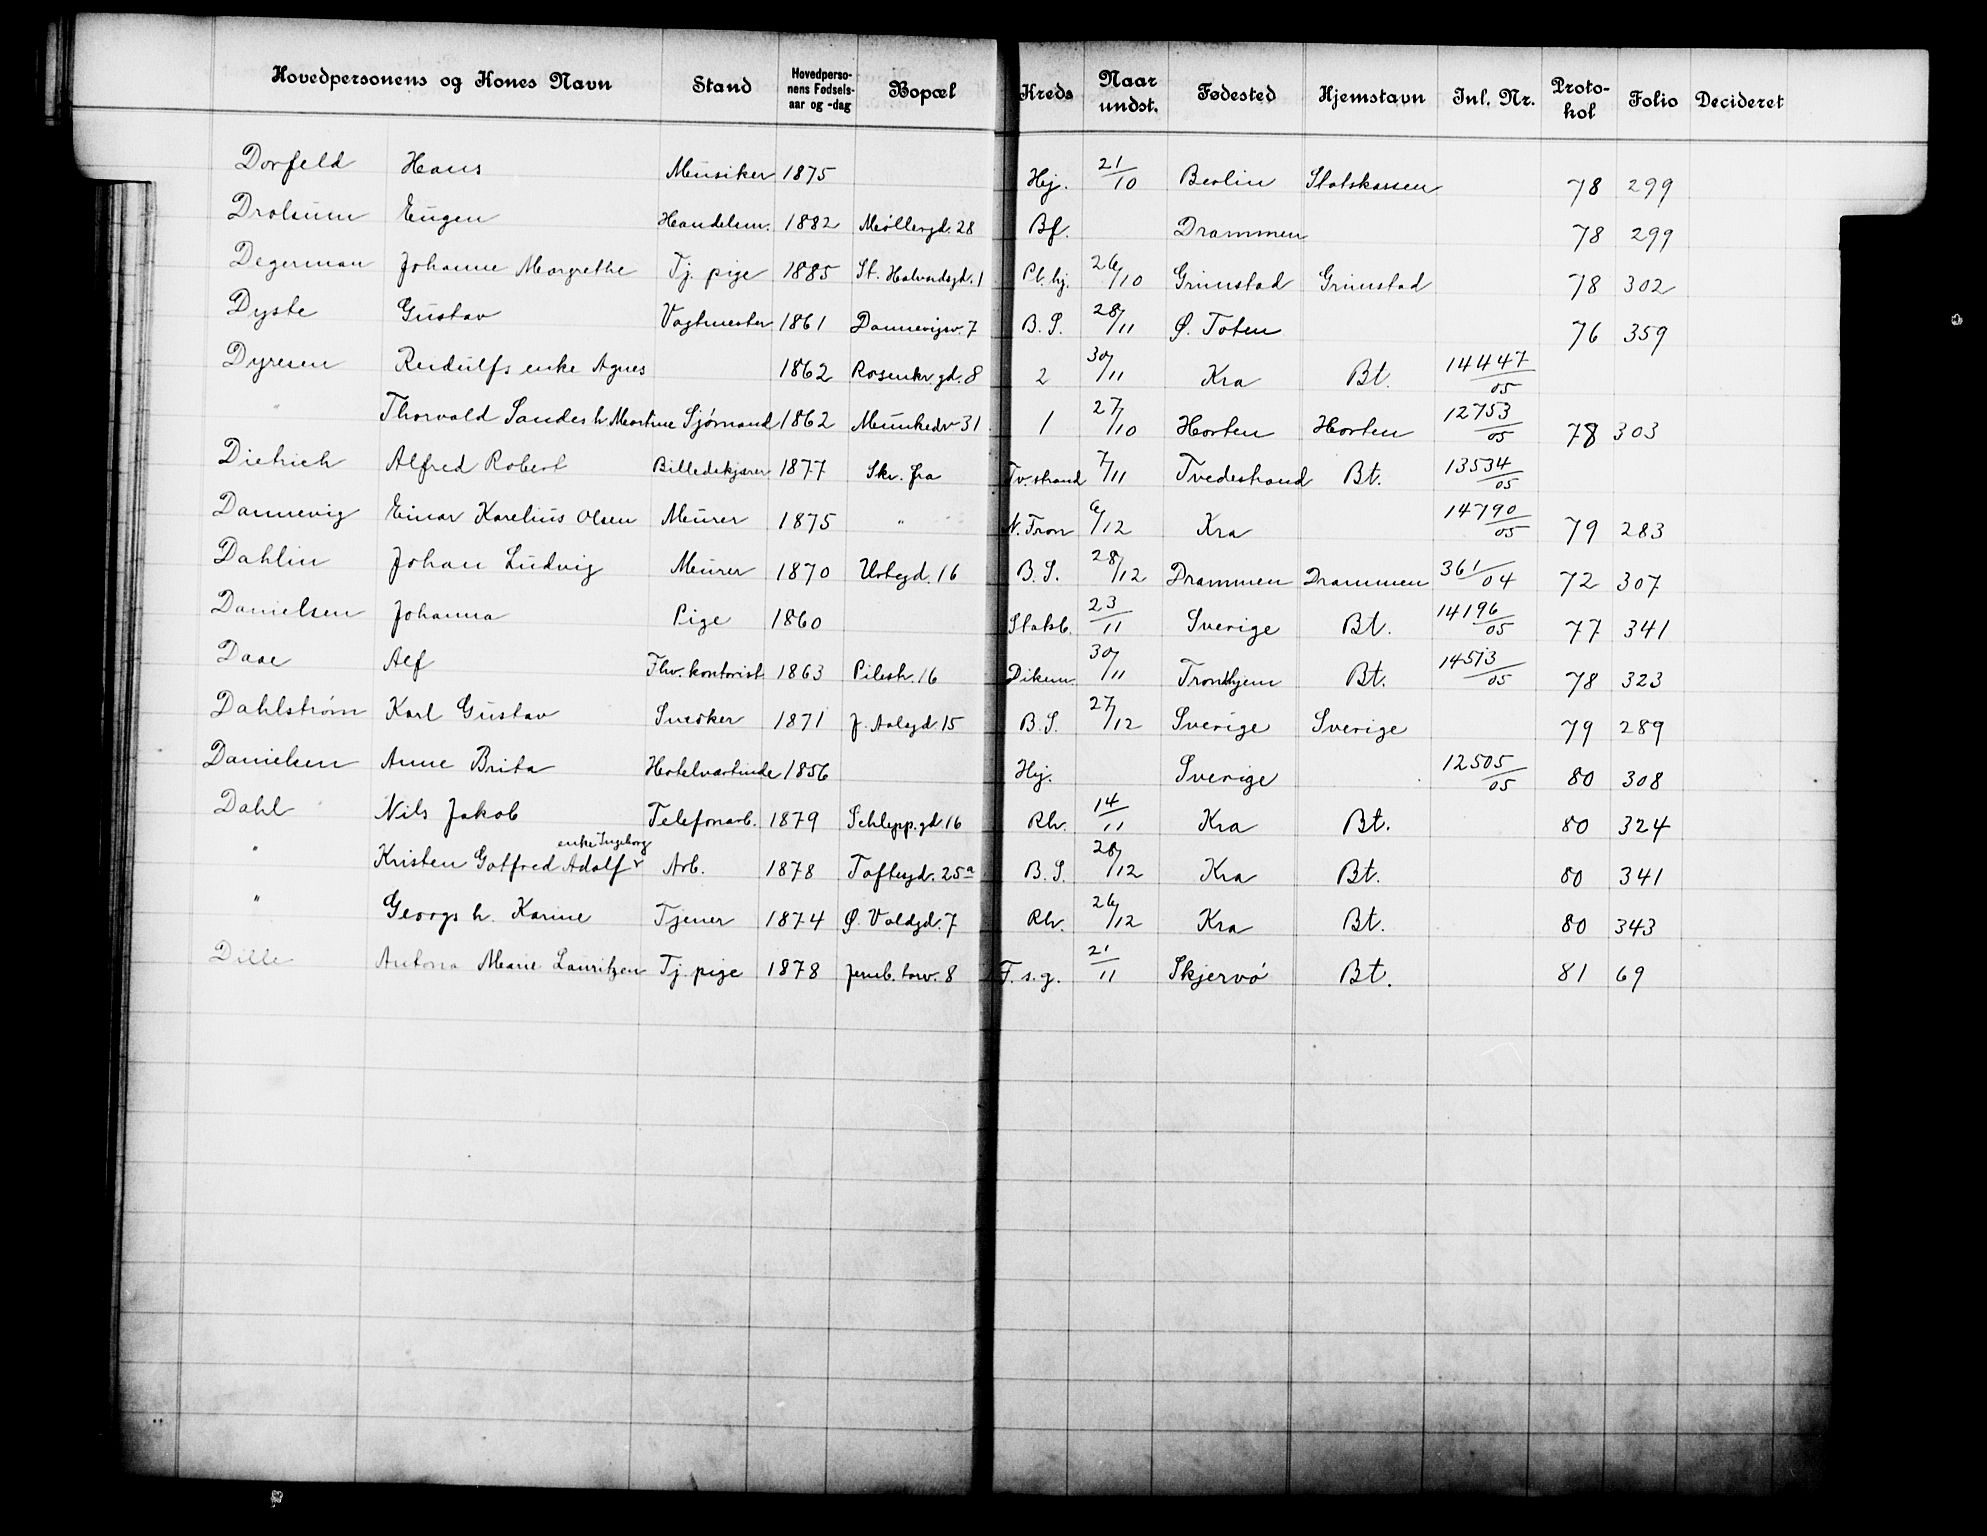 Hovedpersonens og Kones Navn Stand Hovedpersonens Fødselsaar og -dag Bopæl Kreds Naar undst. Fødested Hjemstavn Inl. Nr. Protokol Folio Decideret
Dorfeld Hans Musiker 1875 Hj. 21/10 Berlin Statskassen 78 299
Drolsum Eugen Handelsm. 1882 Møllergd. 28 Bf. Drammen 78 299
Degerman Johanne Margrethe Tj. pige 1885 St. Halvardsgd. 1 Pl. hj. 26/10 Grimstad Grimstad 78 302
Dyste Gustav Vagtmester 1861 Dannevigsv. 7 B. S. 28/11 Ø. Toten 76 359
Dyresen Reidulfs enke Agnes 1862 Rosenkr.gd. 8 2 30/11 Kra Bt. 14447/05
" Thorvald Sandes h. Martine Sjømand 1862 Munkedv 31 1 27/10 Horten Horten 12753/05 78 303
Dietrich Alfred Robert Billedskjærer 1877 Skr. fra Tv.strand 7/11 Tvedestrand Bt. 13534/05
Dannevig Einar Karelius Olsen Murer 1875 " N. Tron 6/12 Kra 14790/05 79 283
Dahlin Johan Ludvig Murer 1870 Urtegd. 16 B. S. 28/12 Drammen Drammen 361/04 72 307
Danielsen Johanna Pige 1860 Statsb. 23/11 Sverige Bt. 14196/05 77 341
Daae Alf Fhv. kontorist 1863 Pilestr. 16 Dikem. 30/11 Tronthjem Bt. 14513/05 78 323
Dahlstrøm Karl Gustav Snedker 1871 J. Aalsgd 15 B. S. 27/12 Sverige Sverige 79 289
Danielsen Anne Brita Hotelværtinde 1856 Hj. Sverige 12505/05 80 308
Dahl Nils Jakob Telefonarb. 1879 Schlepp.gd 16 Rh. 14/11 Kra Bt. 80 324
" Kristen Gotfred Adolf enke Ingeborg Arb. 1878 Toftesgd. 25a B. S. 28/12 Kra Bt. 80 341
" Georgs h. Karine Tjener 1874 Ø. Voldgd. 7 Rh. 26/12 Kra Bt. 80 343
Dille Antona Marie Lauritzen Tj. pige 1878 Jernb. torv. 8 F. s. g. 21/11 Skjervö Bt. 81 69